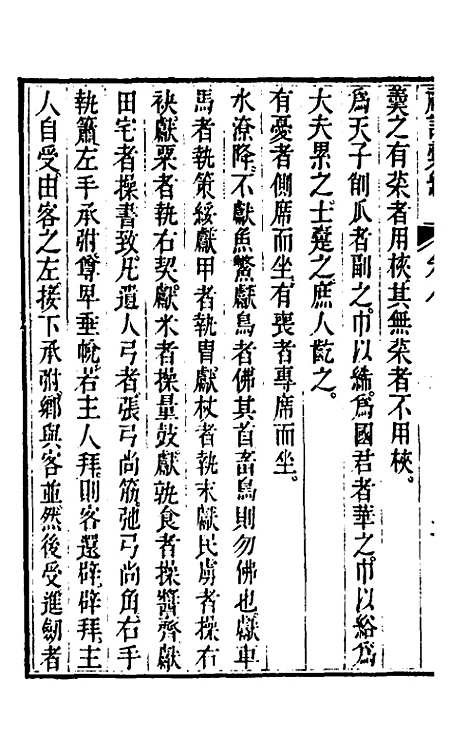 羹之有菜者用梜其無菜者不用梜。
爲天子削瓜者副之巾以絺爲國君者華之巾以綌爲
大夫累之士疐之庶人齕之。
有憂者側席而坐有喪者專席而坐。
水潦降不獻魚鱉獻鳥者佛其首畜鳥則勿佛也獻車
馬者執策綏獻甲者執冑獻杖者執末獻民虜者操右
袂獻粟者執右契獻米者操量鼓獻孰食者操醬齊獻
田宅者操書致凡遺人弓者張弓尚筋弛弓尚角右手
執簫左手承弣尊卑垂帨若主人拜則客還辟辟拜主
人自受由客之左接下承弣鄉與客並然後受進劒者